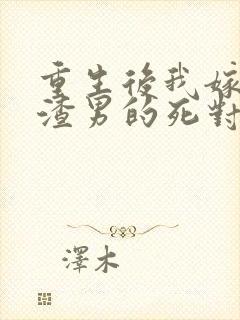 重生後我嫁
渣男的死對
澤木